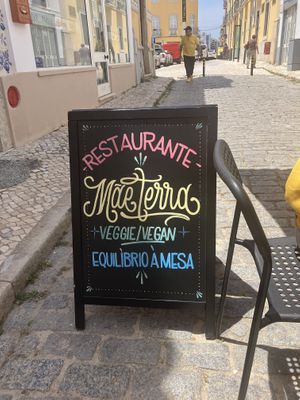 RESTAURANTE
Mãe terra
VEGGIE/VEGAN
EQUILÍBRIO À MESA